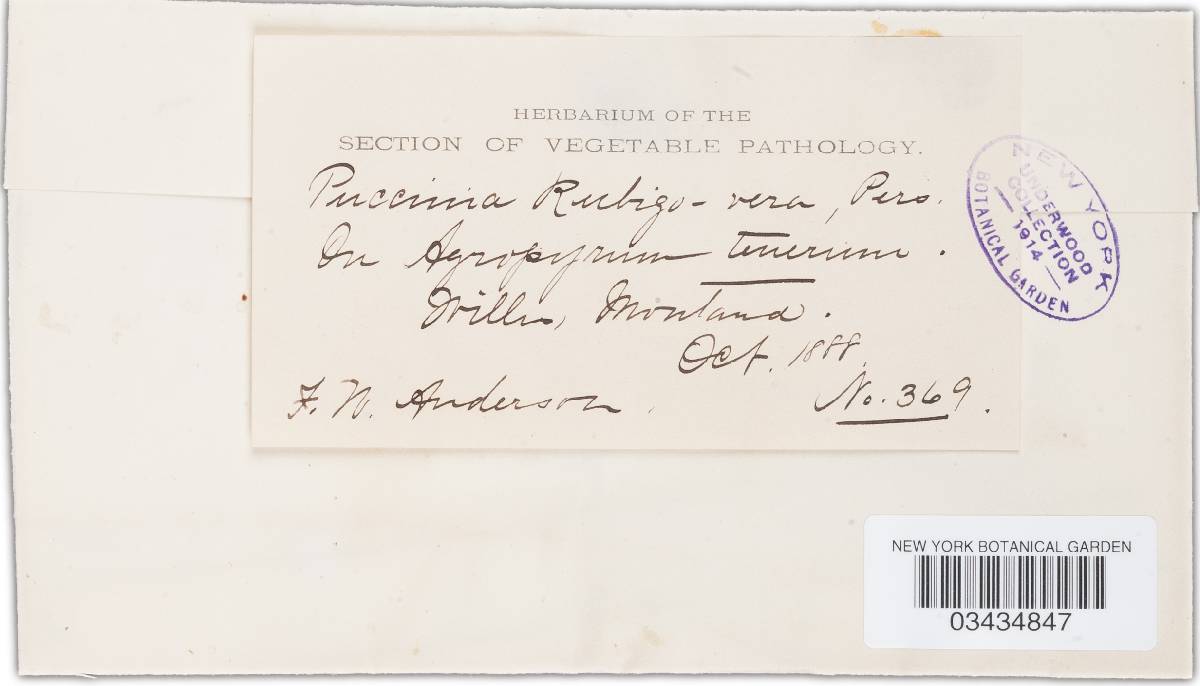 HERBARIUM OF THE
SECTION OF VEGETABLE PATHOLOGY.
Puccinia Rubigo-vera, Pers.
On Agropyrum tenerum.
Willis, Montana.
Oct. 1888.
F. W. Anderson.
No. 369.
NEW YORK
UNDERWOOD
COLLECTION
— 1914 —
BOTANICAL GARDEN
NEW YORK BOTANICAL GARDEN
03434847